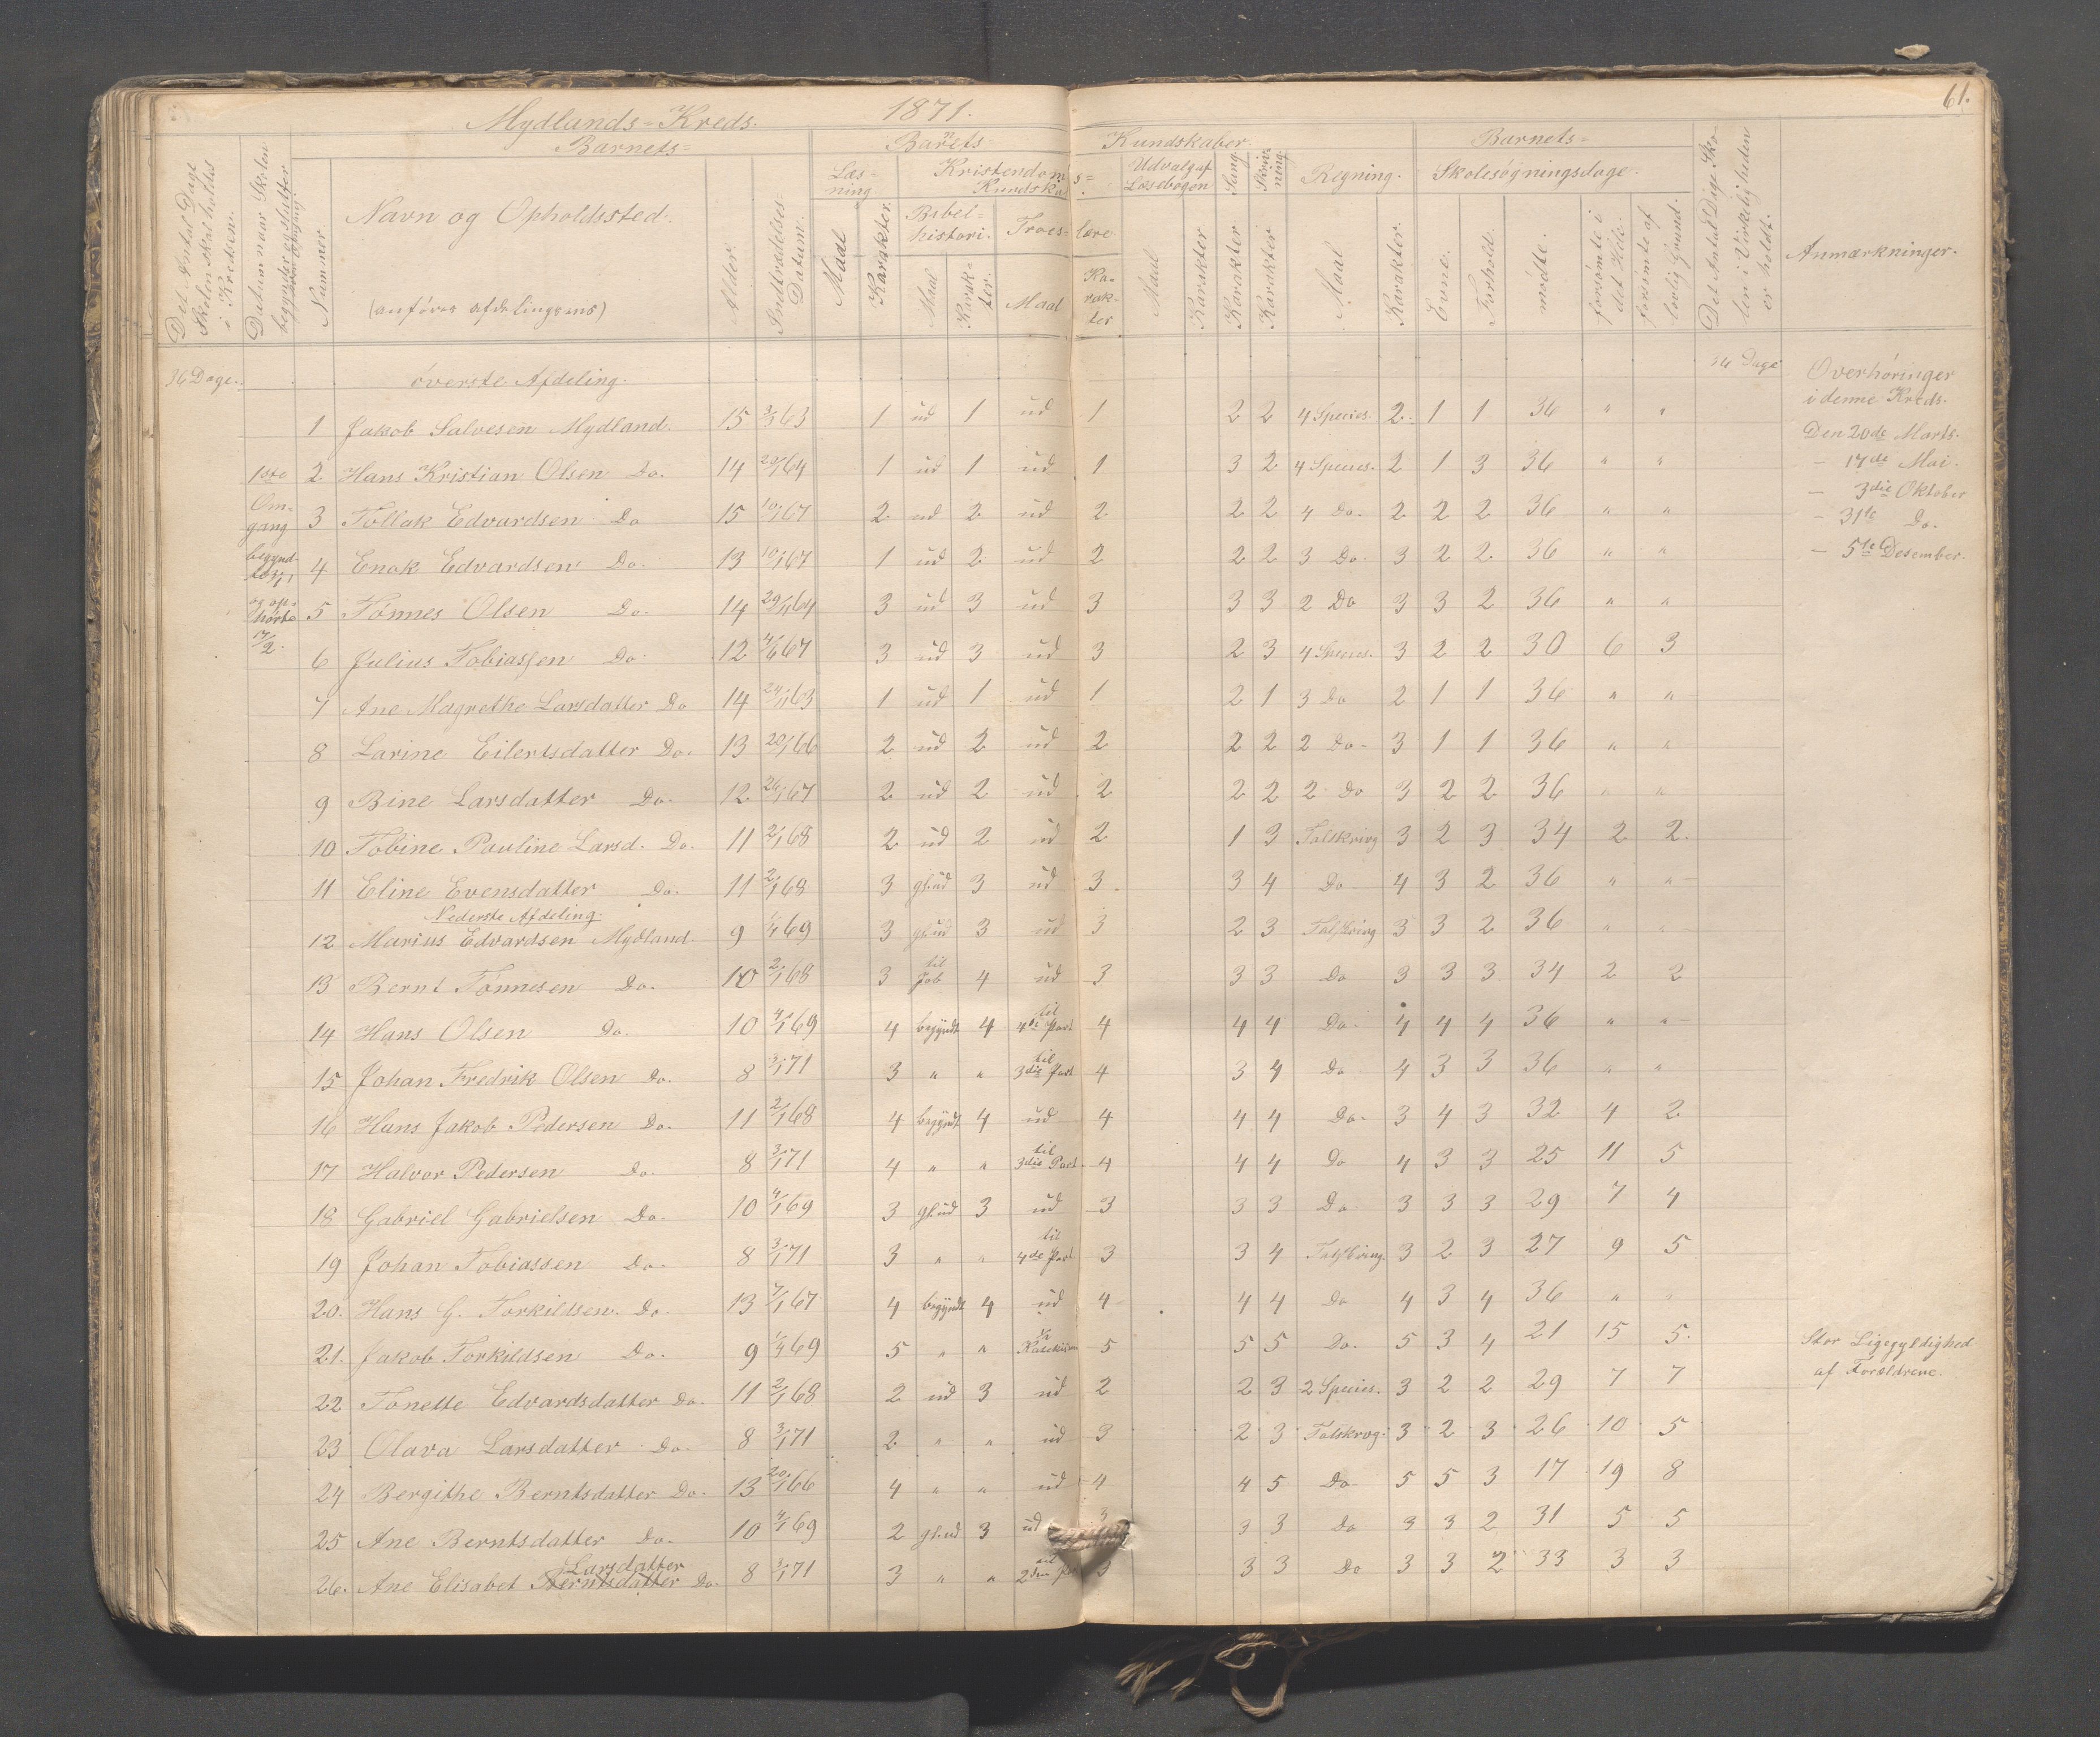 61.
Mydlands-Kreds. 1871.
Barnets=
Barnets Kundskaber
Barnets=
Det Antal Dage Skolen skal holdes i Kredsen.
Datum naar Skolen begynder og slutter
Nummer.
Navn og Opholdssted.
(anføres afdelingsvis)
Alder.
Indtrædelses Datum.
Læs=ning.
Maal
Karakter.
Kristendoms= Kundskab.
Bibel=histori.
Maal
Karak=ter.
Troes=lære.
Maal
Ka=rak=ter
Udvalg af Læsebogen
Maal
Karakter
Sang.
Karakter
Skriv=ning.
Karakter
Regning.
Maal
Karakter.
Skolesøgningsdage.
Evne.
Forhold.
mødte.
forsømte i det Hele.
forsømte af lovlig Grund.
Det Antal Dage Sko=len i Virkeligheden er holdt.
Anmærkninger.
36 Dage. øverste Afdeling. 36 Dage Overhøringer
i denne Kreds.
1 Jakob Salvesen Mydland. 15 3/3 63 1 ud 1 ud 1 2 2 4 Species. 2 1 1 36 " "
Den 20de Marts.
1ste 2 Hans Kristian Olsen Do. 14 29/1 64 1 ud 1 ud 1 3 2 4 Species. 2 1 3 36 " "
- 17de Mai.
- 3die Oktober
Om=gang 3 Tollak Edvardsen Do 15 10/1 67 2 ud 2 ud 2 2 2 4 Do. 2 2 2 36 " "
- 31te Do.
begynd-te 4 Enok Edvardsen Do. 13 10/1 67 1 ud 2 ud 2 2 2 3 Do. 3 2 2 36 " "
- 5te Desember.
og op-hørte 5 Tønnes Olsen Do. 14 29/11 64 3 ud 3 ud 3 3 3 2 Do 3 3 2 36 " "
17/2. 6 Julius Tobiassen Do. 12 4/6 67 3 ud 3 ud 3 2 3 4 Species. 3 2 2 30 6 3
7 Ane Magrethe Larsdatter Do 14 24/11 63 1 ud 1 ud 1 2 1 3 Do 2 1 1 36 " "
8 Larine Eilertsdatter Do. 13 20/1 66 2 ud 2 ud 2 2 2 2 Do. 3 1 1 36 " "
9 Bine Larsdatter Do. 12 26/1 67 2 ud 2 ud 2 2 2 2 Do 3 2 2 36 " "
10 Tobine Pauline Larsd. Do. 11 2/1 68 2 ud 2 ud 2 1 3 Talskrivg 3 2 3 34 2 2.
11 Eline Evensdatter Do. 11 2/1 68 3 gl.ud 3 ud 3 3 4 Do 4 3 2 36 " "
Nederste Afdeling.
12 Marius Edvardsen Mydland 9 1/4 69 3 gl.ud 3 ud 3 2 3 Talskrivg 3 3 2 36 " "
13 Bernt Tønnesen Do. 10 2/1 68 3 til Job 4 ud 3 3 3 Do 3 3 3 34 2 2
14 Hans Olsen Do. 10 4/1 69 4 begyndt 4 til 4de Part 4 4 4 Do 4 4 4 36 " "
15 Johan Fredrik Olsen Do. 8 3/1 71 3 " " til 3die Part 4 3 4 Do 4 3 3 36 " "
16 Hans Jakob Pedersen Do. 11 2/1 68 4 begyndt 4 ud 4 4 4 Do. 3 4 3 32 4 2
17 Halvor Pedersen Do. 8 3/1 71 4 " " til 3die Part 4 4 4 Do 4 3 3 25 11 5
18 Gabriel Gabrielsen Do. 10 4/1 69 3 gl.ud 3 ud 3 3 3 Do 3 3 3 29 7 4
19 Johan Tobiassen Do. 8 3/1 71 3 " " til 4de Part 3 3 4 Talskrivg. 3 2 3 27 9 5
20. Hans G. Torkildsen. Do. 13 7/1 67 4 begyndt 4 ud 4 4 4 Do 4 3 4 36 " "
21. Jakob Torkildsen Do. 9 1/4 69 5 " " 5 5 5 Do. 5 3 4 21 15 5. Stor Ligegyldighed
af Forældrene.
22 Tonette Edvardsdatter Do. 11 2/1 68 2 ud 3 ud 2 2 3 2 Species. 3 2 2 29 7 7
23 Olava Larsdatter Do. 8 3/1 71 2 " " ud 3 2 3 Talskrvg. 3 2 3 26 10 5
24 Bergithe Berntsdatter Do. 13 20/1 66 4 " " ud 4 4 5 Do 5 5 3 17 19 8
25 Ane Berntsdatter Do. 10 4/1 69 2 gl.ud 3 ud 3 3 3 Do 3 3 2 31 5 5
Larsdatter
26. Ane Elisabet Berntsdatter Do. 8 3/1 71 3 " " til 2den 3 3 3 Do 3 3 2 33 3 3